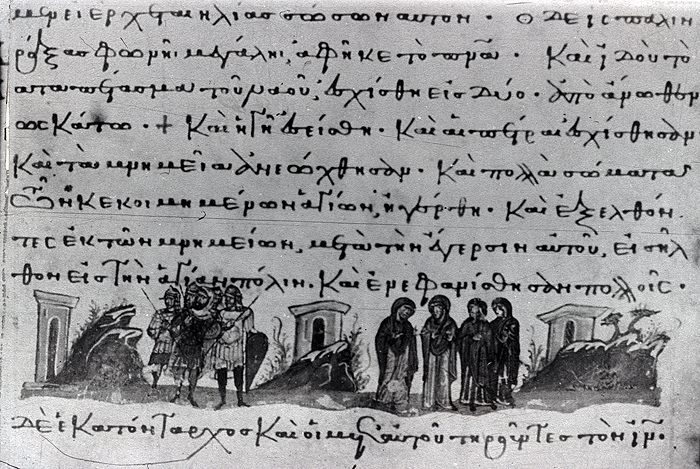 μεν εἰ ἔρχεται ἡλίας σώσων αὐτόν· ὁ δὲ ἰς πάλιν
κράξας φωνῆ μεγάλη, ἀφῆκε τὸ πνα· Καὶ ἰδοὺ τὸ
καταπέτασμα τοῦ ναοῦ, ἐσχίσθη εἰς δύο· ἀπὸ ἄνωθεν
ἕως κάτω· + Καὶ ἡ γῆ ἐσείσθη· Καὶ αἱ πέτραι ἐσχίσθησαν
Καὶ τὰ μνημεῖα ἀνεώχθησαν· Καὶ πολλὰ σώματα
τῶν κεκοιμημένων ἁγίων, ἠγέρθη· Καὶ ἐξελθόν
τες ἐκ τῶν μνημείων, μετὰ τὴν ἔγερσιν αὐτοῦ, εἰσῆλ
θον εἰς τὴν ἁγίαν πόλιν· Καὶ ἐνεφανίσθησαν πολλοῖς·
δὲ ἑκατόνταρχος Καὶ οἱ μετ' αὐτοῦ τηροῦντες τὸν ιν·